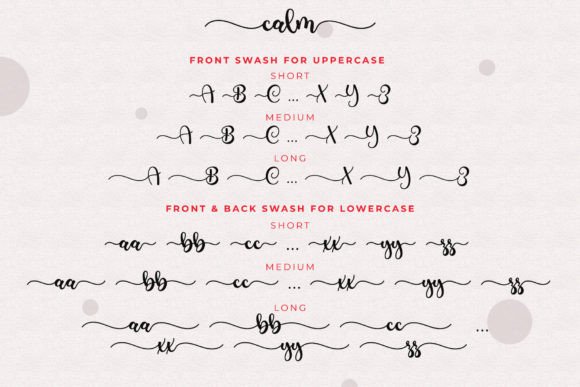 calm
FRONT SWASH FOR UPPERCASE
SHORT
A B C ... X Y Z
MEDIUM
A B C ... X Y Z
LONG
A B C ... X Y Z
FRONT & BACK SWASH FOR LOWERCASE
SHORT
aa bb cc ... xx yy zz
MEDIUM
aa bb cc ... xx yy zz
LONG
aa bb cc ...
xx yy zz